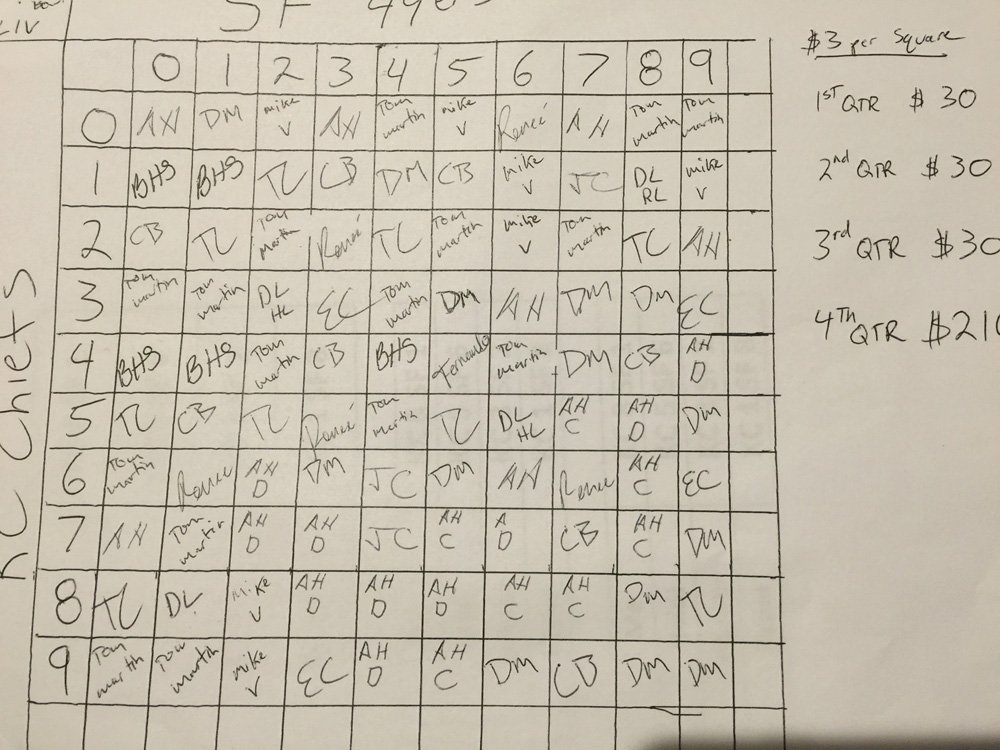 LIV
SF 49ers
KC Chiefs
0 1 2 3 4 5 6 7 8 9
0 AH DM mike V AH Tom martin mike V Reneé AH Tom martin Tom martin
1 BHS BHS TC CB DM CB mike V JC DL RL mike V
2 CB TC Tom martin Reneé TC Tom martin mike V Tom martin TC AH
3 Tom martin Tom martin DL HL EC Tom martin DM AH DM DM EC
4 BHS BHS Tom martin CB BHS Fernando Tom martin DM CB AH D
5 TC CB TC Reneé Tom martin TC DL HL AH C AH D DM
6 Tom martin Renee AH D DM JC DM AH Renee AH C EC
7 AH Tom martin AH D AH D JC AH C A D CB AH C DM
8 TC DL mike V AH D AH D AH D AH C AH C DM TC
9 Tom martin Tom martin mike V EC AH D AH C DM CB DM DM
$3 per Square
1ST QTR $30
2nd QTR $30
3rd QTR $30
4Th QTR $210